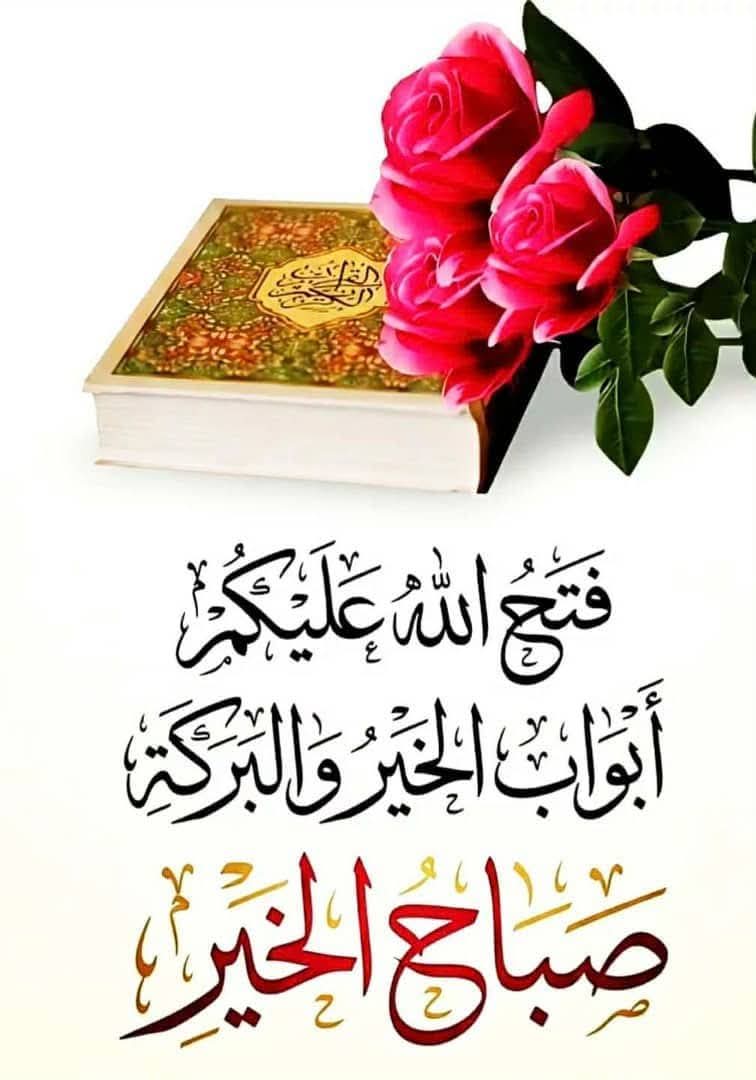 القرآن
الكريم
فَتَحُ اللهُ عَلَيْكُمْ
أَبْوَابَ الخَيْرُ وَالبَرَكَةِ
صَبَاحُ الخَيْرِ